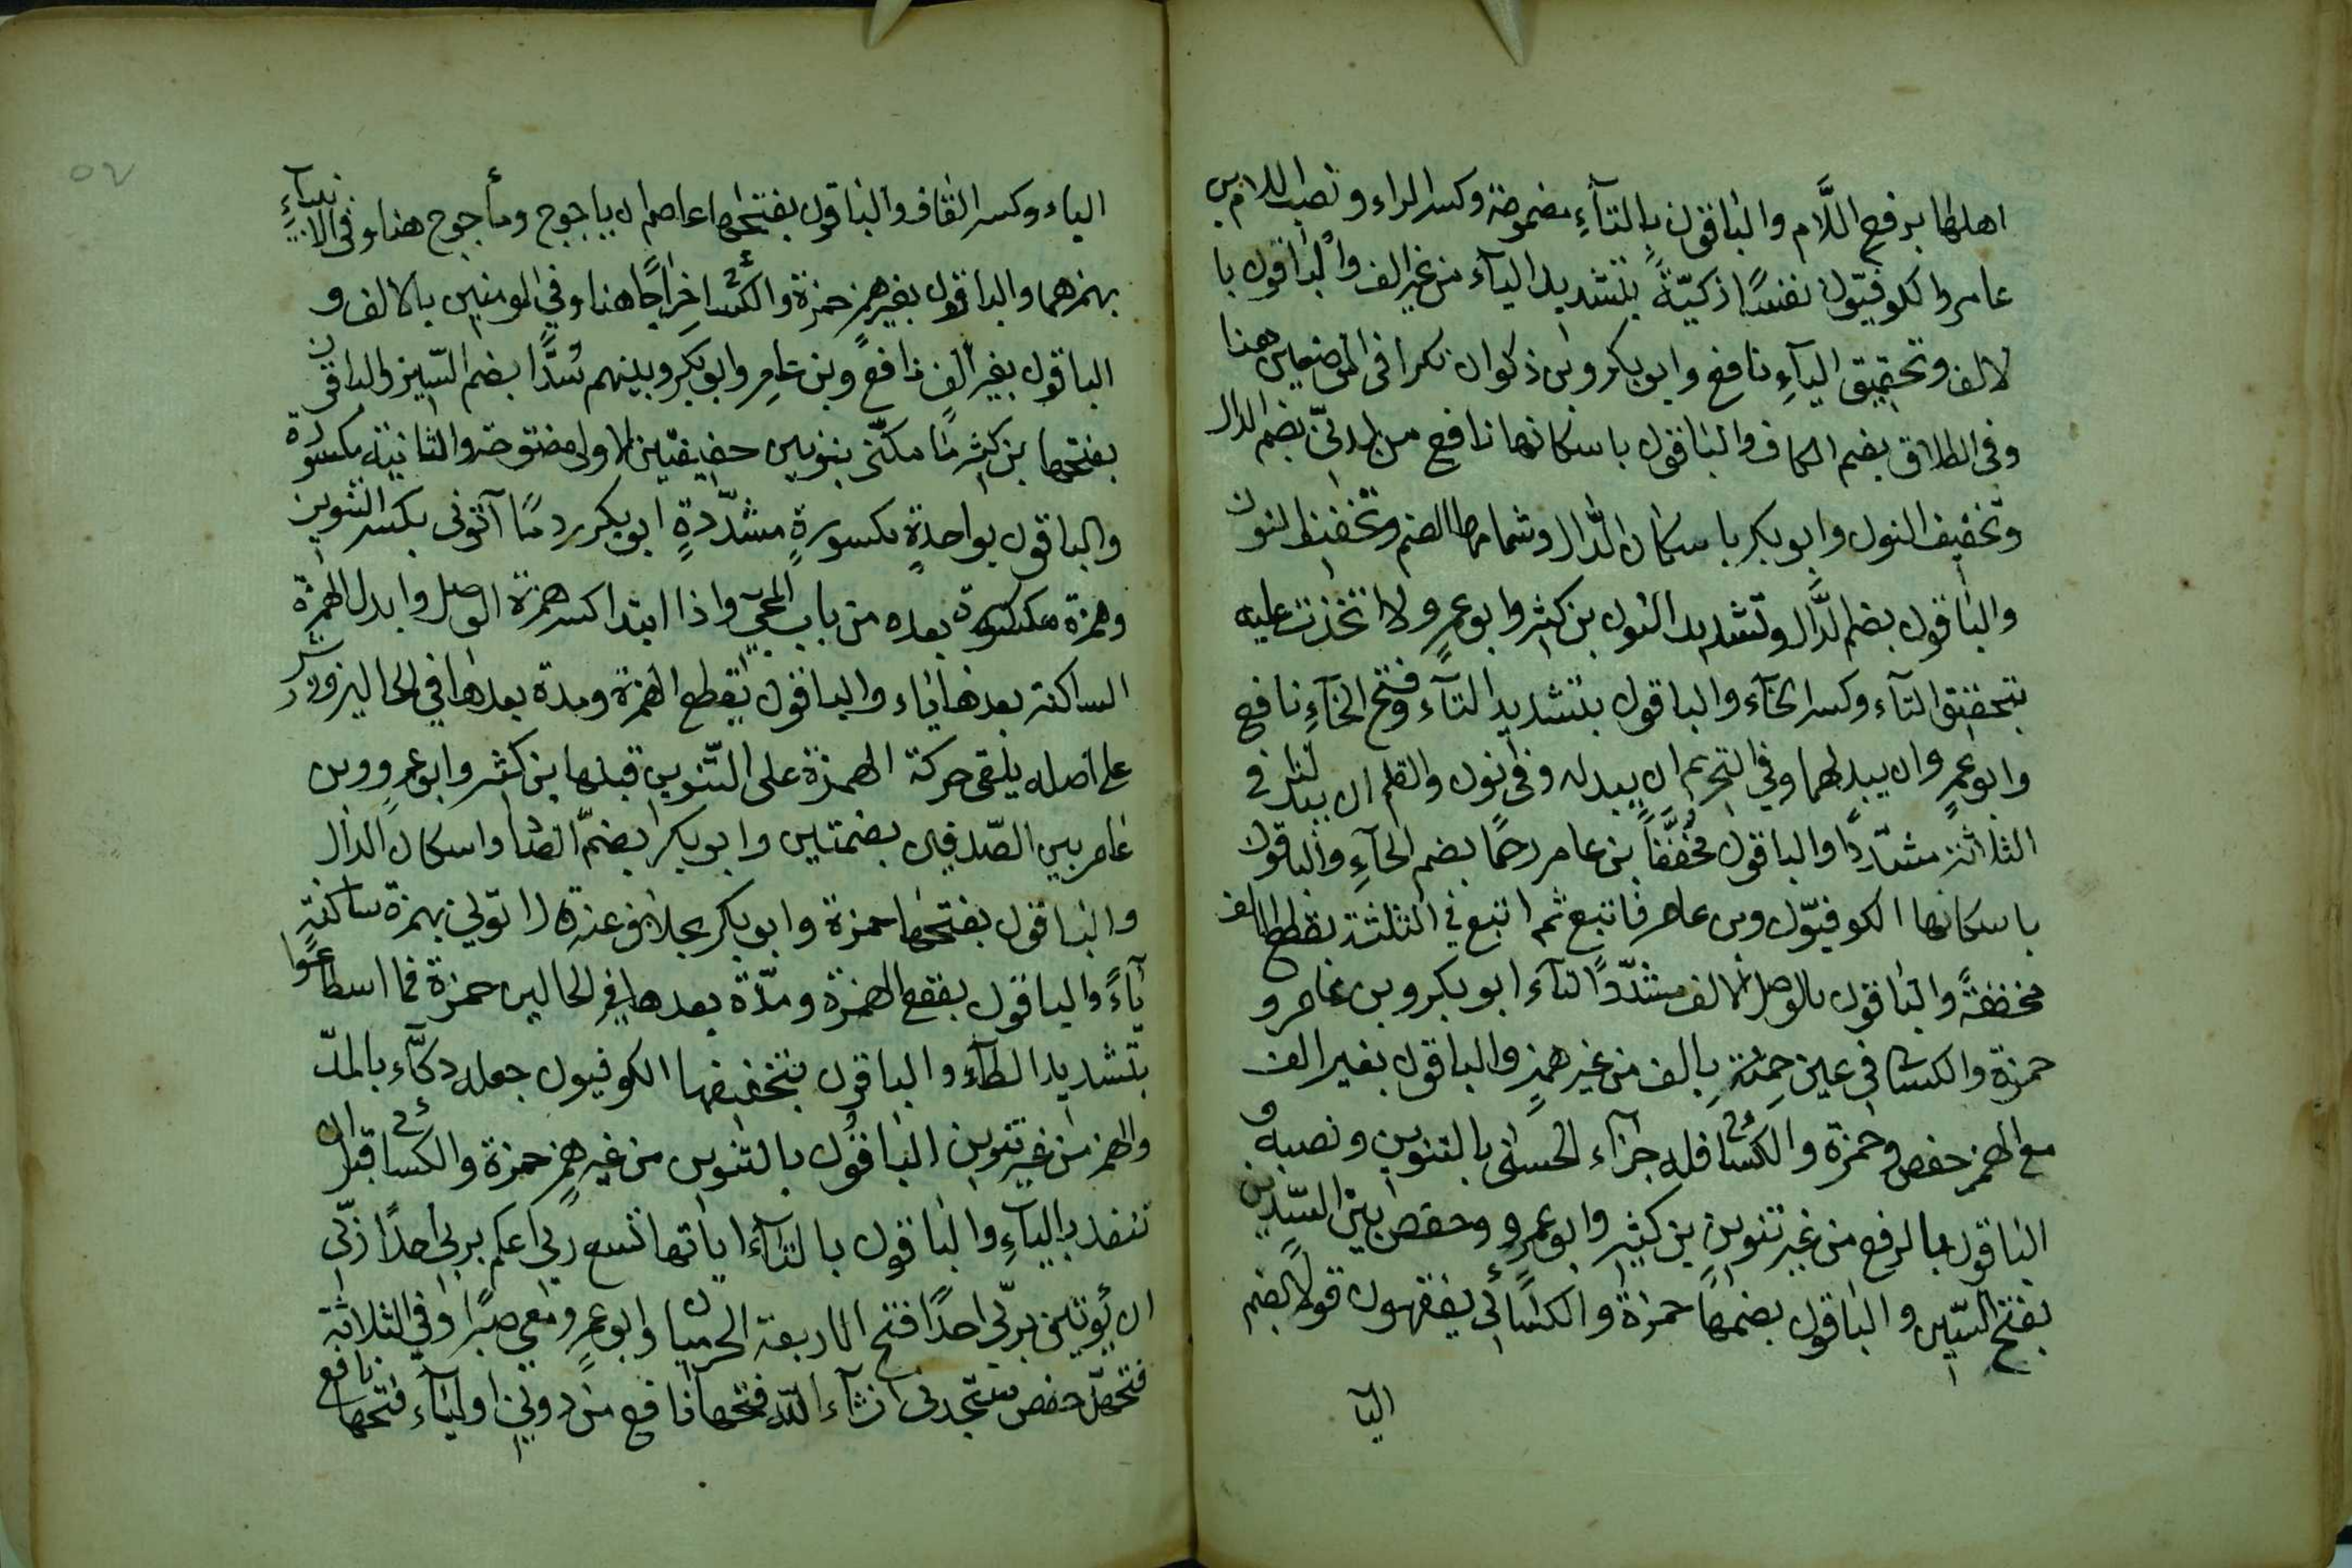 اهلها برفع اللَّام والباقون بالتآءِ مضمومة وكسر الراء ونصب اللام بن
عامر والكوفيّون نفسًا زكيّةً بتشديد اليآء من غير الف والباقون با
لالف وتخفيق اليآءِ نافع وابو بكر وبن ذكوان نكرا في الموضعين هنا
وفي الطلاق بضم الكاف والباقون باسكانها نافع من لدنّي بضم الدال
وتخفيف النون وابو بكر باسكان الدّال وشمامها الضم وتخفيف النون
والباقون بضم الدَّال وتشديد النون بن كثير وابو عمرٍو لاتخذت عليه
بتخفيق التآء وكسر الخآء والباقون بتشديد التآء وفتح الخآءِ نافع
وابو عمرٍو ان يبدلهما وفي التحريم ان يبدله وفي نون والقلم ان يبدلنا في
الثلاثة مشدّدًا والباقون مخفّفًا بن عامر رحمًا بضم الحآءِ والباقون
باسكانها الكوفيّون وبن عامر فاتبع ثم اتبع في الثلثة بقطع الالف
مخففةً والباقون بالوصل الالف مشدّدًا التآء ابو بكر وبن عامر و
حمزة والكسا في عين حمئةٍ بالف من غير همزٍ والباقون بغير الف
مع الهمز حفص وحمزة والكسائي فله جزآء الحسنى بالتنوين ونصبه و
الباقون بالرفع من غير تنوين بن كثير وابو عمرٍو وحفص بين السّدين
بفتح السّين والباقون بضمها حمزة والكسائي يفقهون قولًا بضم
اليا
الياء وكسر القاف والباقون بفتحها عاصم ان ياجوج ومأجوج هنا وفي الانبيآءِ
بهمزهما والباقون بغير همز حمزة والكسائي خراجًا هنا وفي المومنين بالالف و
الباقون بغير الف نافع وبن عامر وابو بكر وبينهم سُدًّا بضم السّين والباقون
بفتحها بن كثير ما مكّنني بنونين خفيفتين الاولى مفتوحة والثانية مكسورة
والباقون بواحدةٍ مكسورةٍ مشدّدةٍ ابو بكر ردمًا آتوني بكسر التنوين
وهمزة مكسورة بعده من باب المجيّ واذا ابتدا كسر همزة الوصل وابدل الهمزة
الساكنة بعدها ياء والباقون بقطع الهمزة ومدة بعدها في الحالين وورش
على اصله يلقى حركة الهمزة على التّنوين قبلها بن كثير وابو عمرٍو وبن
عامر بين الصّدفين بضمتين وابو بكر بضمّ الصّاد واسكان الدال
والباقون بفتحها حمزة وابو بكر بخلاف عنه قال اتوني بهمزة ساكنة
يآءً والباقون بقطع الهمزة ومدّة بعدها في الحالين حمزة فما اسطاعوا
بتشديد الطآءِ والباقون بتخفيفها الكوفيون جعله دكآء بالمدّ
والهمز من غير تنوين الباقون بالتنوين من غير همزٍ حمزة والكسائي قبل ان
تنفد باليآءِ والباقون بالتآء اياتها تسع ربي اعلم بربي احدًا ربّي
ان يؤتين بربّي احدًا فتح الاربعة الحرميان وابو عمرٍو معي صبرًا في الثلاثة
فتحهنّ حفص ستجدني ان شآء اللّه فتحها نافع من دوني اوليآء فتحها نافع